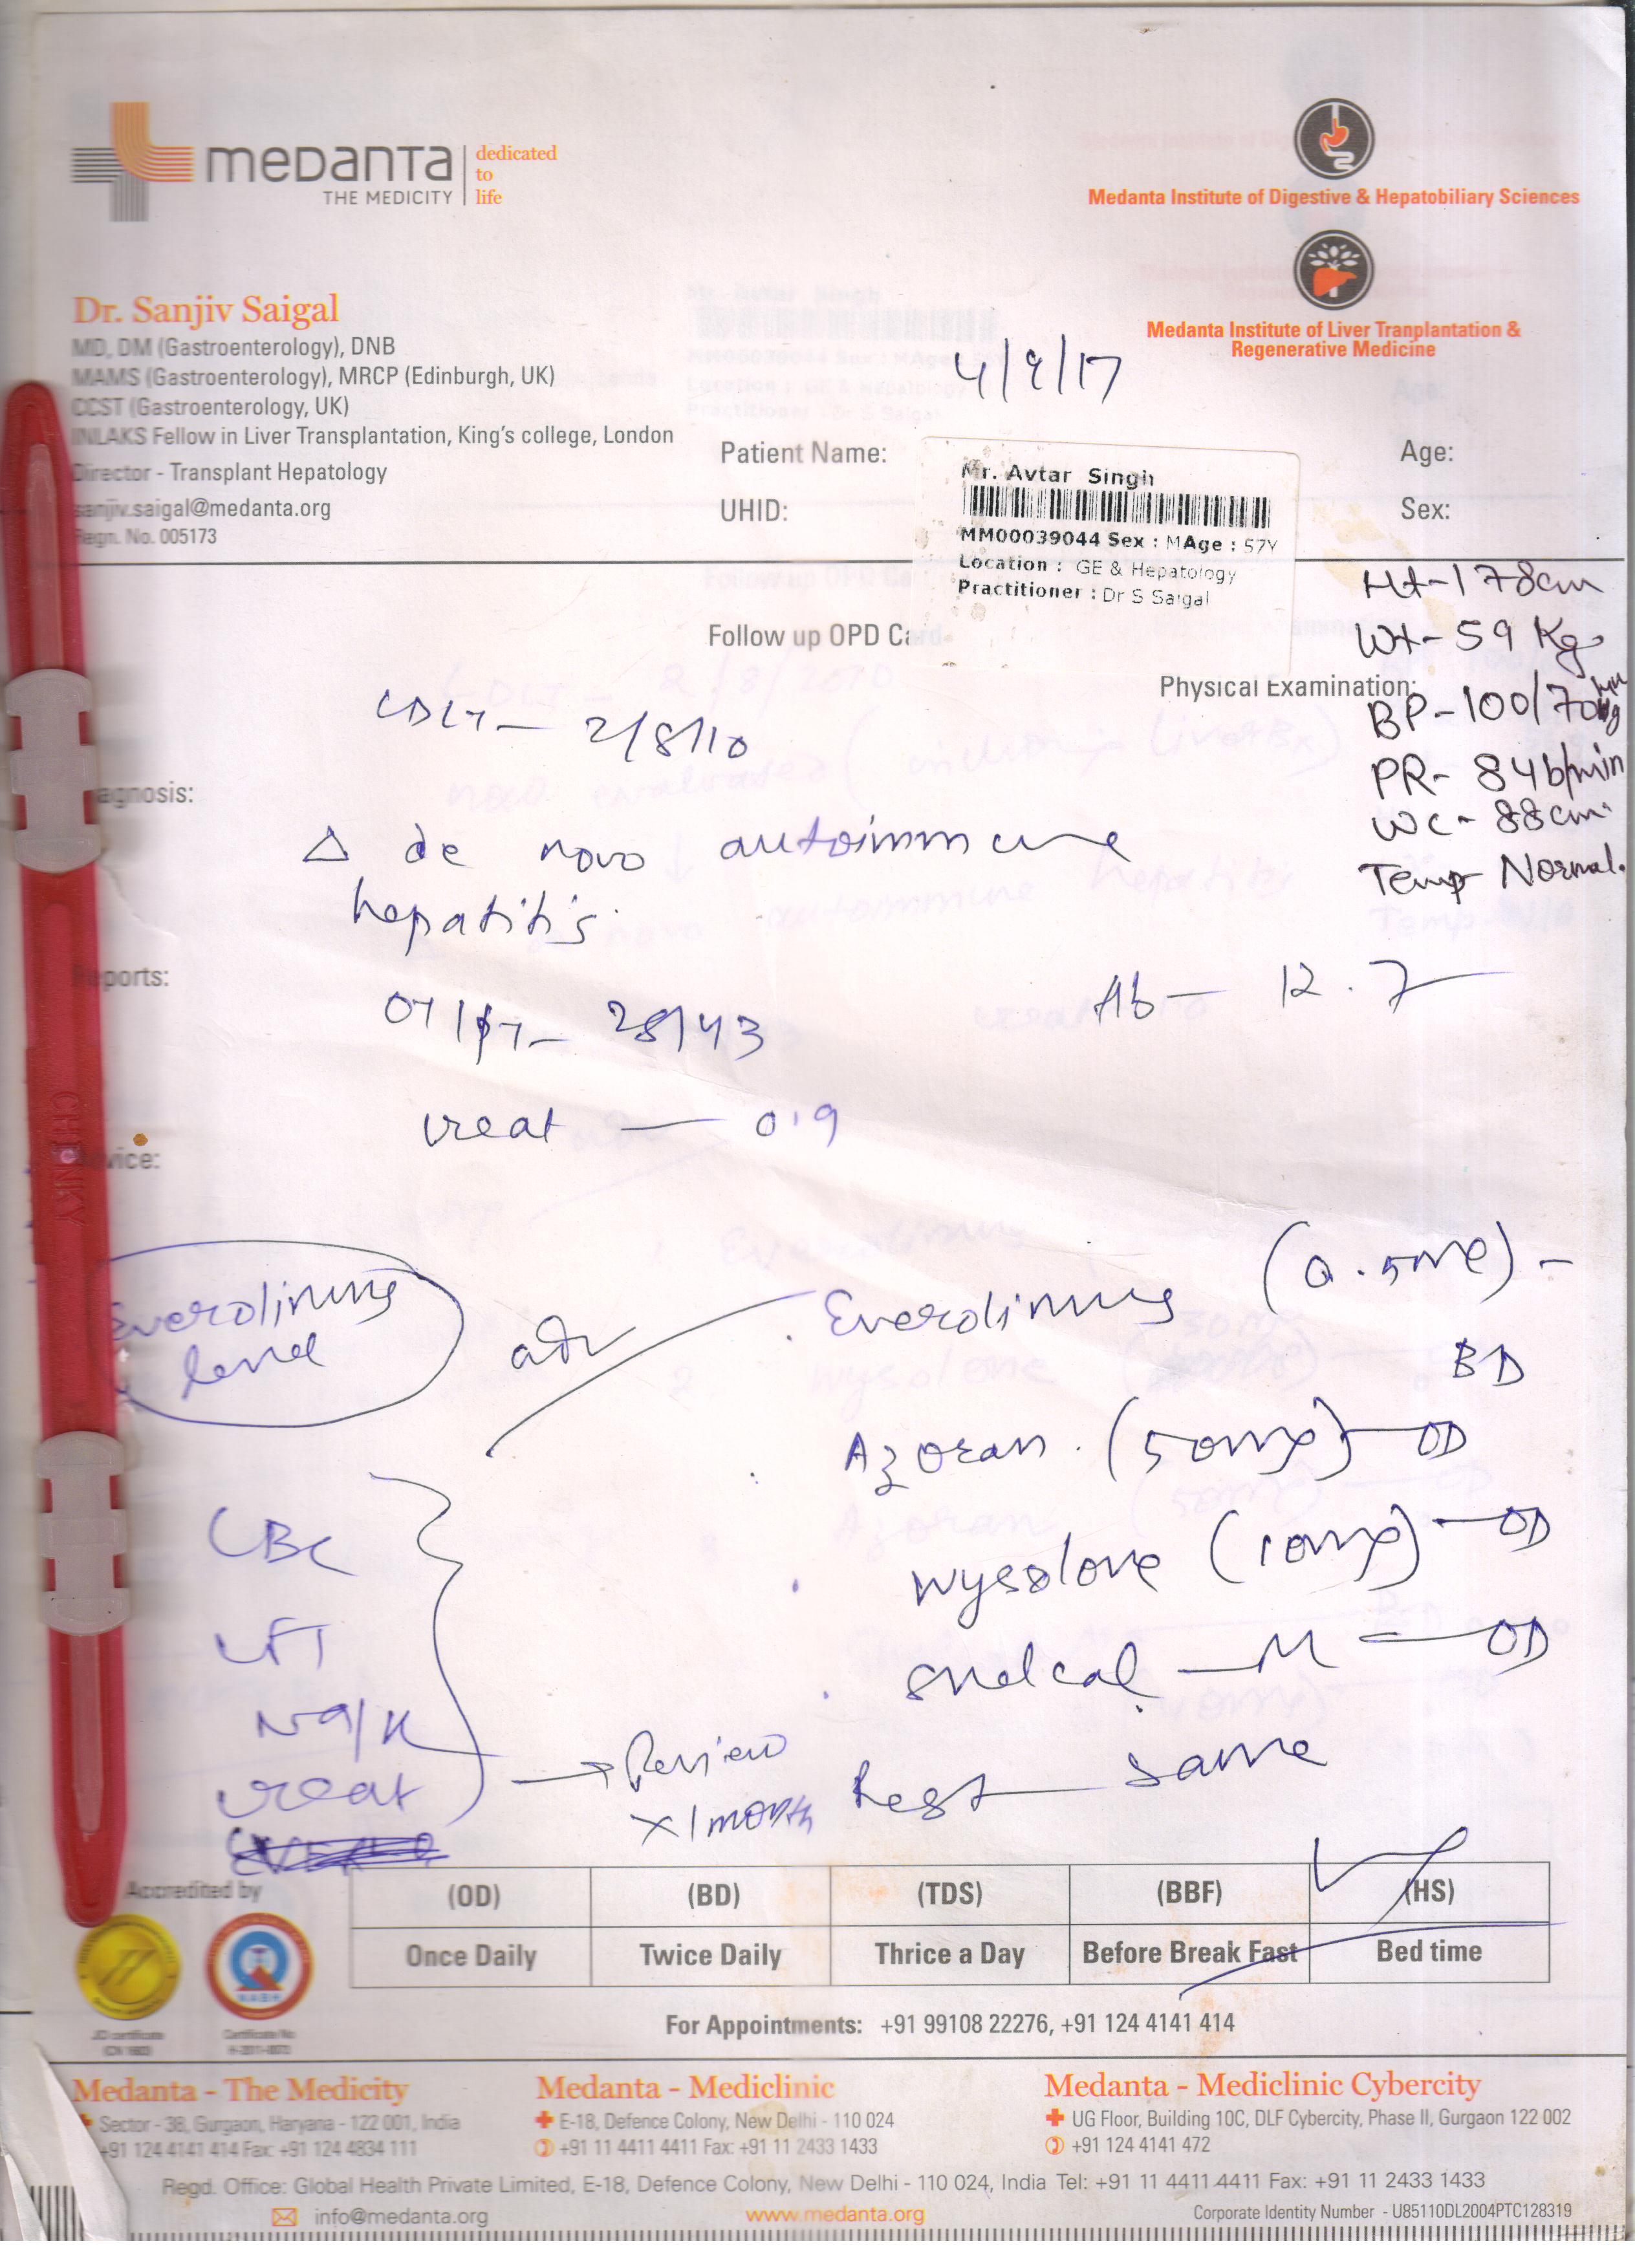 medanta
THE MEDICITY
dedicated
to
life
Medanta Institute of Digestive & Hepatobiliary Sciences
Medanta Institute of Liver Tranplantation &
Regenerative Medicine
Dr. Sanjiv Saigal
MD, DM (Gastroenterology), DNB
MAMS (Gastroenterology), MRCP (Edinburgh, UK)
CCST (Gastroenterology, UK)
INLAKS Fellow in Liver Transplantation, King's college, London
Director - Transplant Hepatology
sanjiv.saigal@medanta.org
Regn. No. 005173
4/9/17
Patient Name:
Age:
UHID:
Sex:
Mr. Avtar Singh
MM00039044 Sex : M Age : 57Y
Location : GE & Hepatology
Practitioner : Dr S Saigal
Follow up OPD Card
Physical Examination:
Ht-178cm
Wt-59 Kg
BP-100/70 mm Hg
PR-84b/min
WC-88cm
Temp Normal.
LDLT- 2/8/10
agnosis:
Δ de novo autoimmune
hepatitis
eports:
OT/PT- 28/43
Hb- 12.7
creat - 0.9
vice:
Everolimus
level
adv
Everolimus (0.5mg) -
BD
Azoran (50mg) - OD
Wysolone (10mg) - OD
Shelcal - M - OD
Rest same
CBC
LFT
Na/K
creat
→ Review
x 1 month
Accredited by
(OD) (BD) (TDS) (BBF) (HS)
Once Daily Twice Daily Thrice a Day Before Break Fast Bed time
For Appointments: +91 99108 22276, +91 124 4141 414
Medanta - The Medicity
Sector - 38, Gurgaon, Haryana - 122 001, India
+91 124 4141 414 Fax: +91 124 4834 111
Medanta - Mediclinic
E-18, Defence Colony, New Delhi - 110 024
+91 11 4411 4411 Fax: +91 11 2433 1433
Medanta - Mediclinic Cybercity
UG Floor, Building 10C, DLF Cybercity, Phase II, Gurgaon 122 002
+91 124 4141 472
Regd. Office: Global Health Private Limited, E-18, Defence Colony, New Delhi - 110 024, India Tel: +91 11 4411 4411 Fax: +91 11 2433 1433
info@medanta.org
www.medanta.org
Corporate Identity Number - U85110DL2004PTC128319
CHINKY